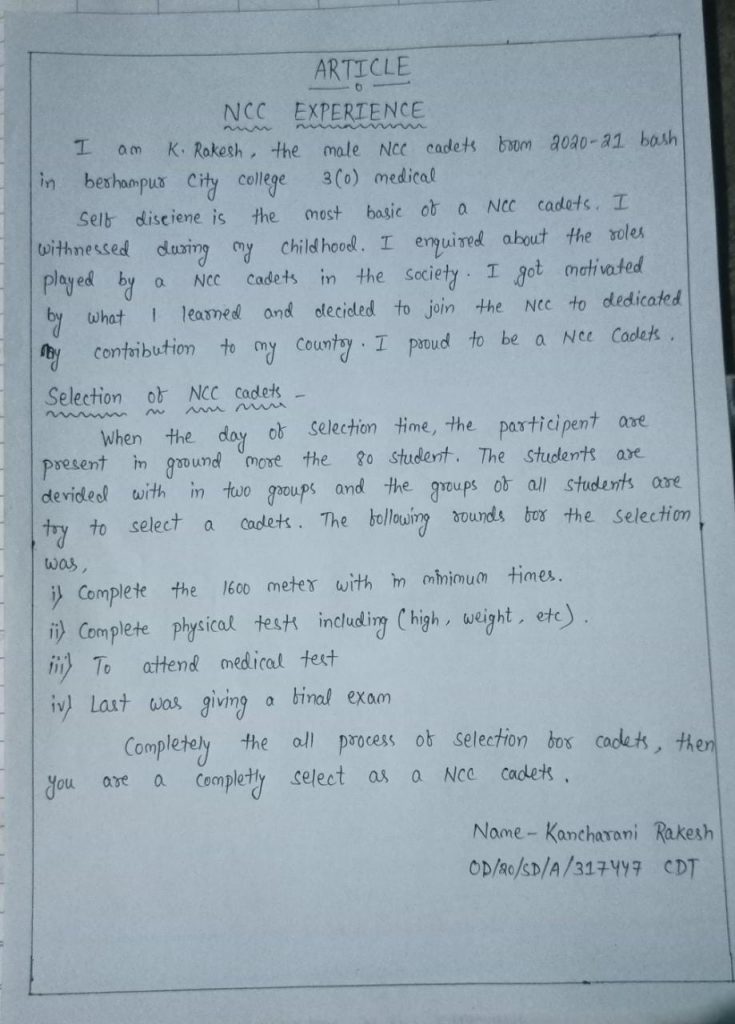 ARTICLE
NCC EXPERIENCE
I am K. Rakesh, the male NCC cadets from 2020-21 bash
in berhampur City college 3(0) medical
Self disciene is the most basic of a NCC cadets. I
withnessed during my childhood. I enquired about the roles
played by a NCC cadets in the society. I got motivated
by what I learned and decided to join the NCC to dedicated
my contribution to my country. I proud to be a NCC Cadets.
Selection of NCC cadets -
When the day of selection time, the participent are
present in ground more the 80 student. The students are
devided with in two groups and the groups of all students are
try to select a cadets. The following rounds for the selection
was,
i) Complete the 1600 meter with in minimum times.
ii) Complete physical tests including (high, weight, etc).
iii) To attend medical test
iv) Last was giving a final exam
Completely the all process of selection for cadets, then
you are a completly select as a NCC cadets.
Name - Kancharani Rakesh
OD/20/SD/A/317447 CDT